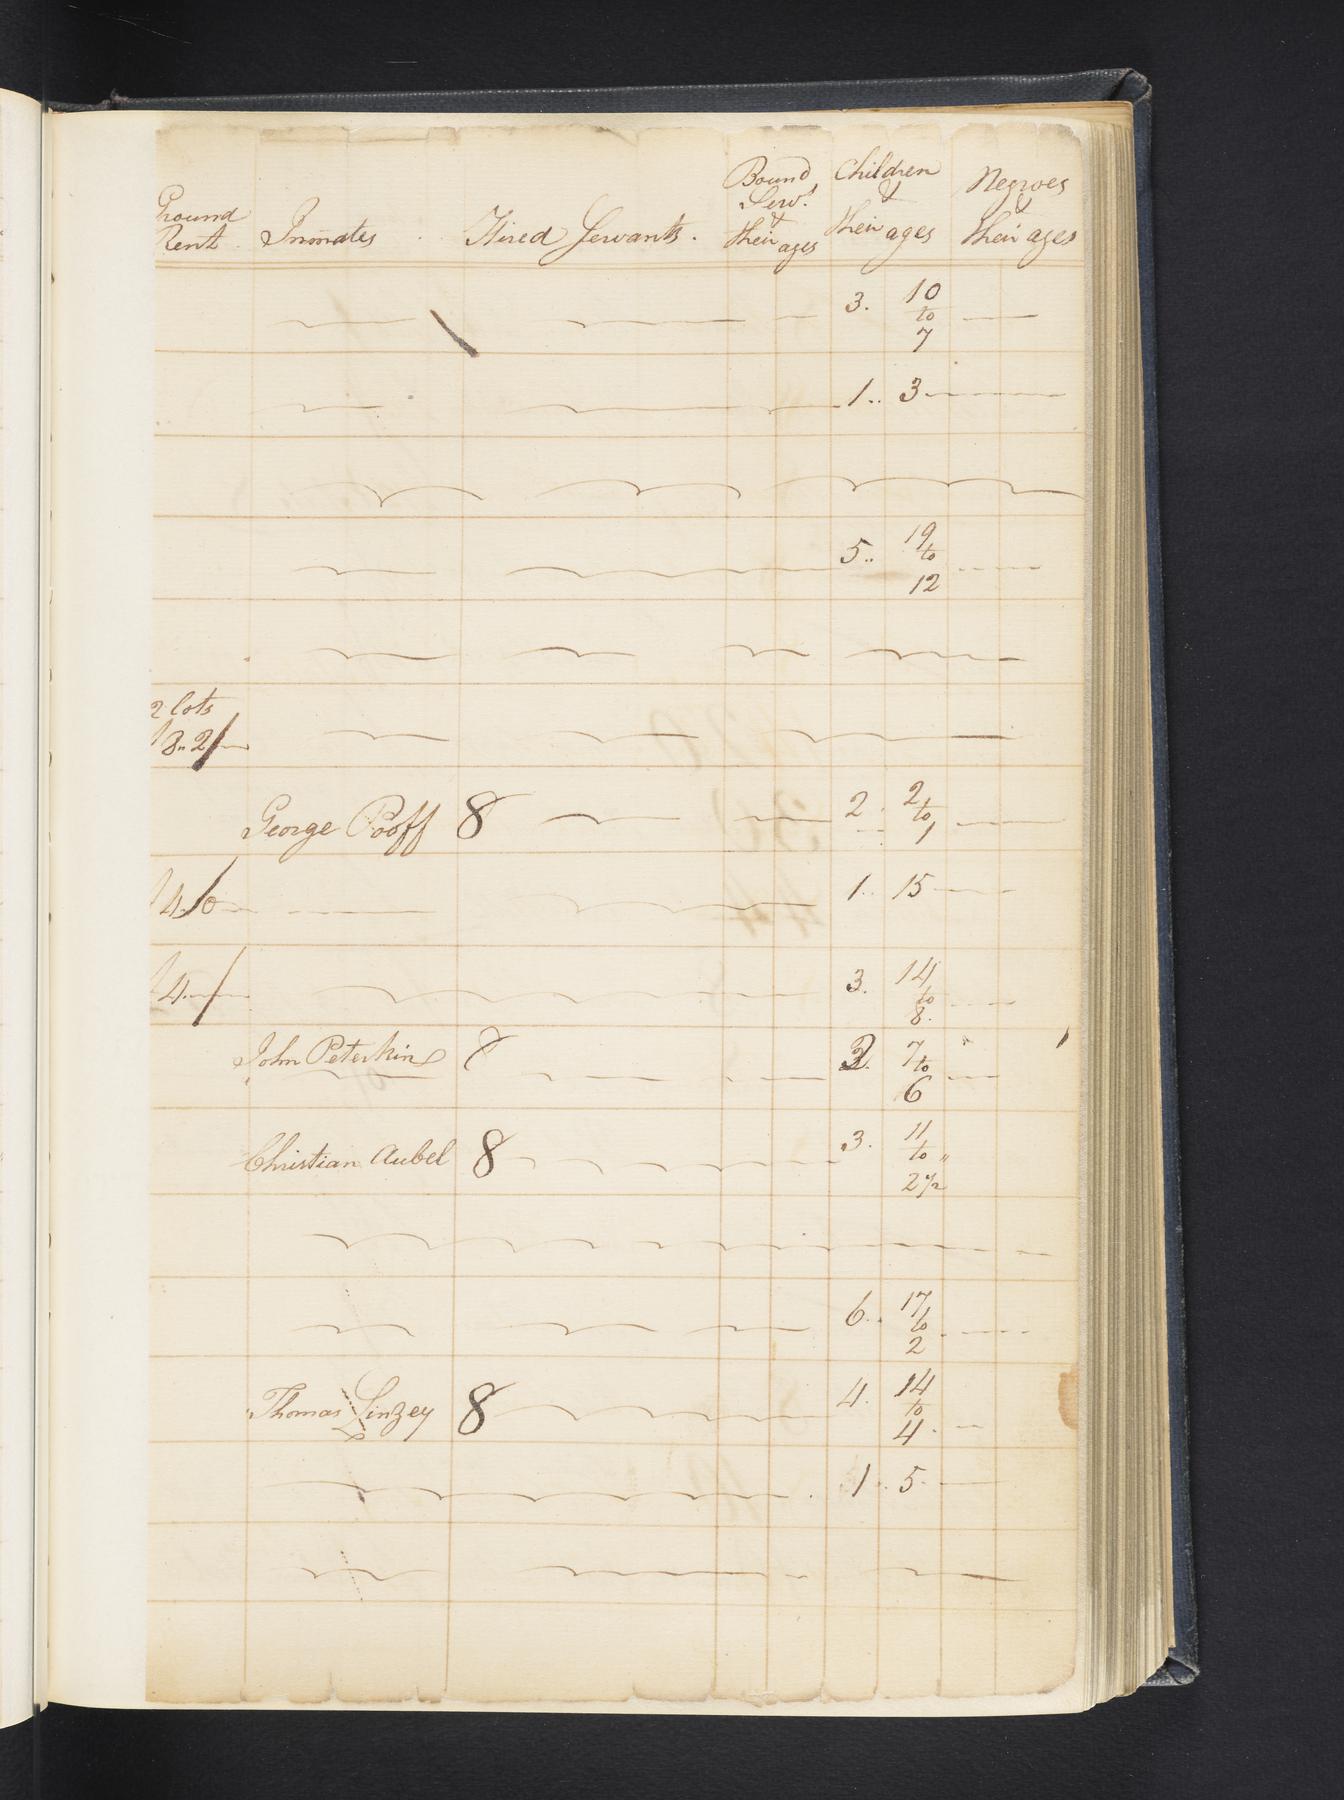 Ground Rent Inmates Hired Servants. Bound Serv.ts & their ages Children & their ages Negroes & their ages
3. 10 to 7
1.. 3
5.. 19 to 12
2 lots
8.. 2/
George Pooff 8 2 2 to 1
4./6 1.. 15
4./ 3. 14 to 8.
John Peterkin 8 7 to 6
Christian Aubel 8 3. 11 to 2 1/2
6.. 17 to 2
Thomas Linzey 8 4. 14 to 4.
1. 5